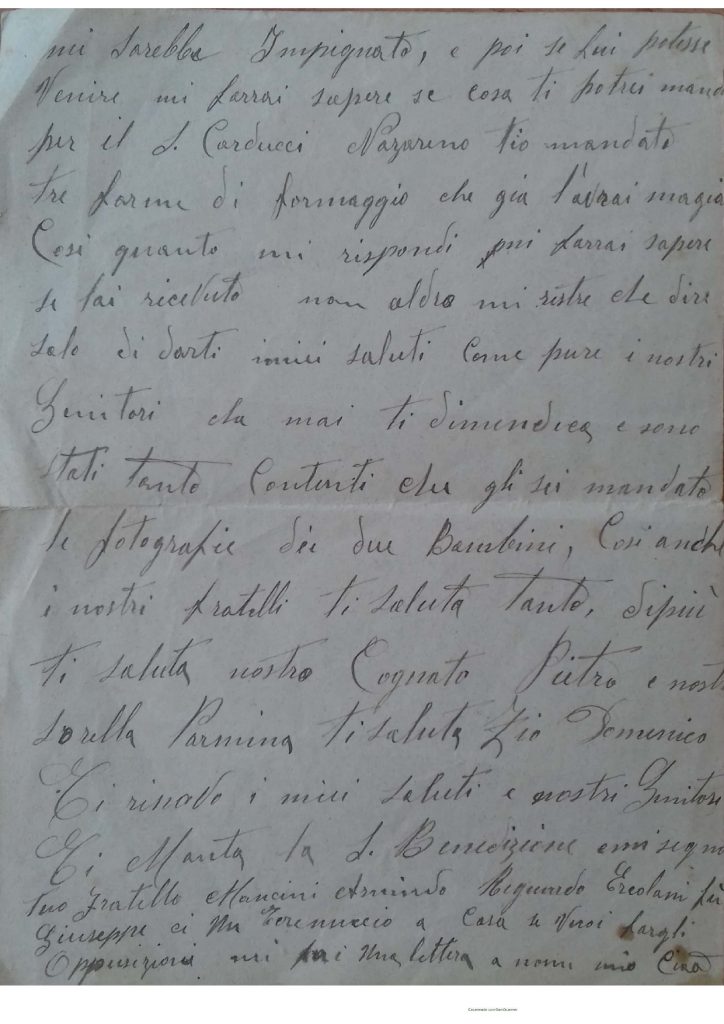 mi sarebba Impignato, e poi se Lui potesse
Venire mi farrai sapere se cosa ti potrei mand
per il S. Carducci Nazareno tio mandato
tre forme di formaggio che gia l'avrai magia
Cosi quanto mi rispondi mi farrai sapere
se lai ricevuto non aldro mi restre che dire
solo di darti i miei saluti Come pure i nostri
Genitori che mai ti dimendica e sono
stati tanto Contenti che gli sei mandato
le fotografie dei due Bambini, Cosi anche
i nostri fratelli ti saluta tanto, dipiù
ti saluta nostro Cognato Pietro e nost
sorella Parmina ti saluta Zio Domenico
Ti rinovo i miei saluti e nostri Genitori
Ti Manta la S. Benedizione e mi segn
tuo Fratello Mancini Armindo Riguardo Ercolani fù
Giuseppe ci un Terenuccio a Casa se Vuoi fargli
Opposizioni mi fai una lettera a nome mio Ciao
CamScanner